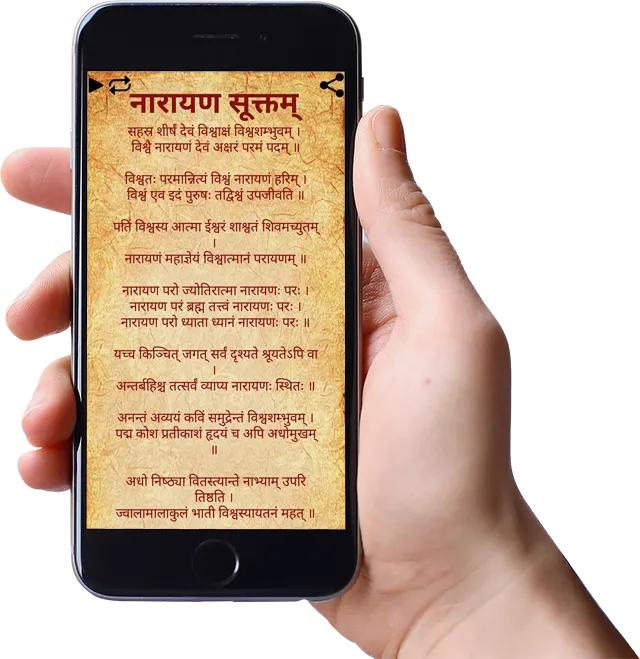 नारायण सूक्तम्
सहस्र शीर्षं देवं विश्वाक्षं विश्वशम्भुवम् ।
विश्वै नारायणं देवं अक्षरं परमं पदम् ॥
विश्वतः परमान्नित्यं विश्वं नारायणं हरिम् ।
विश्वं एव इदं पुरुषः तद्विश्वं उपजीवति ॥
पतिं विश्वस्य आत्मा ईश्वरं शाश्वतं शिवमच्युतम्
।
नारायणं महाज्ञेयं विश्वात्मानं परायणम् ॥
नारायण परो ज्योतिरात्मा नारायणः परः ।
नारायण परं ब्रह्म तत्त्वं नारायणः परः ।
नारायण परो ध्याता ध्यानं नारायणः परः ॥
यच्च किञ्चित् जगत् सर्वं दृश्यते श्रूयतेऽपि वा
।
अन्तर्बहिश्च तत्सर्वं व्याप्य नारायणः स्थितः ॥
अनन्तं अव्ययं कविं समुद्रेन्तं विश्वशम्भुवम् ।
पद्म कोश प्रतीकाशं हृदयं च अपि अधोमुखम्
॥
अधो निष्ठ्या वितस्त्यान्ते नाभ्याम् उपरि
तिष्ठति ।
ज्वालामालाकुलं भाती विश्वस्यायतनं महत् ॥